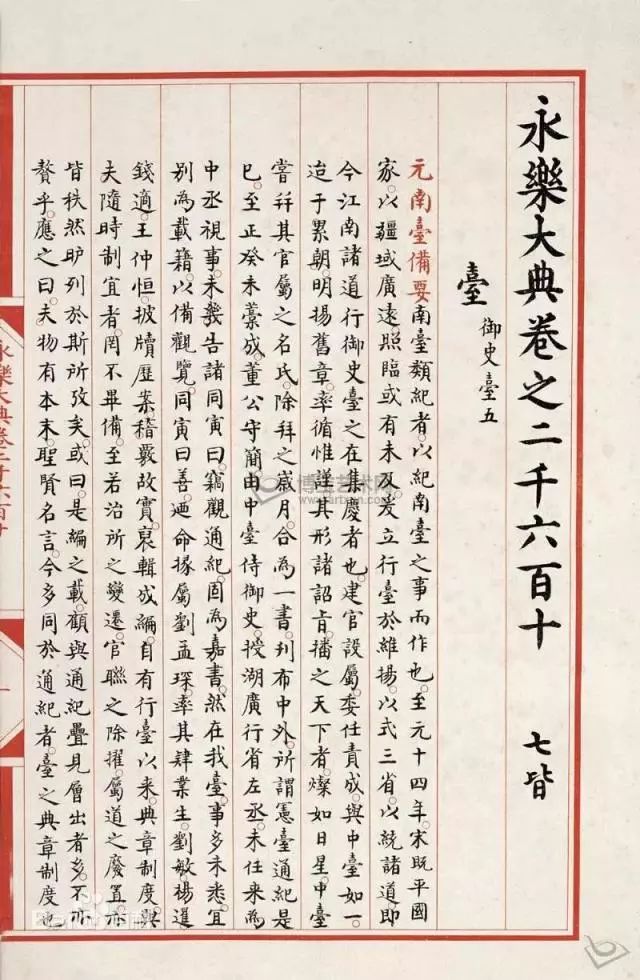 永樂大典卷之二千六百十 七皆
臺 御史臺五
元南臺備要南臺類紀者。以紀南臺之事而作也。至元十四年。宋既平。國
家以疆域廣遠。照臨或有未及。爰立行臺於維揚。以式三省。以統諸道。即
今江南諸道行御史臺之在集慶者也。建官設屬。委任責成。與中臺如一。
迨于累朝。明揚舊章。率循惟謹。其形諸詔㫖。播之天下者。燦如日星。中臺
嘗幷其官屬之名氏。除拜之歲月。合為一書。刋布中外。所謂憲臺通紀是
已。至正癸未藁成。董公守簡。由中臺侍御史。授湖廣行省左丞。未任。来為
中丞視事。未幾。告諸同寅曰。竊觀通紀。固為嘉書。然在我臺。事多未悉。宜
别為載籍。以備觀覽。同寅曰善。廼命掾屬劉孟琛。率其肄業生劉敏楊暹
錢適。王仲恒。披牘歷案。稽覈故實。裒輯成編。自有行臺以来。典章制度。與
夫隨時制宜者。罔不畢備。至若治所之變遷。官聯之除擢。屬道之廢置。亦
皆秩然眆列於斯。所攷矣。或曰。是編之載。顧與通紀疊見層出者多。不亦
贅乎。應之曰。夫物有本末。聖賢名言。今多同於通紀者。臺之典章制度也
永樂大典卷二千六百十
博宝艺术网